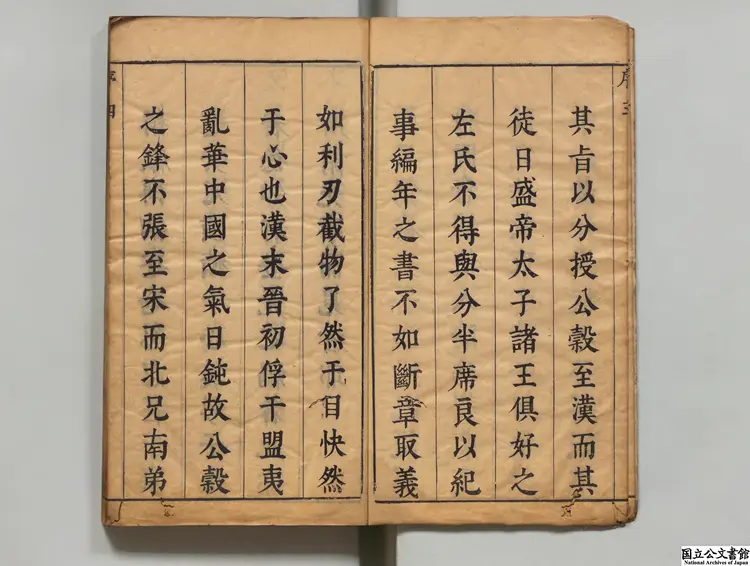 其旨以分授公穀至漢而其
徒日盛帝太子諸王俱好之
左氏不得與分半席良以紀
事編年之書不如斷章取義
如利刃截物了然于目快然
于心也漢末晉初俘干盟夷
亂華中國之氣日鈍故公穀
之鋒不張至宋而北兄南弟
国立公文書館
National Archives of Japan